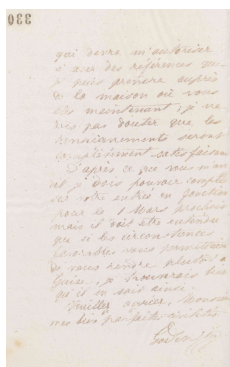 330
qui devra m'autoriser
avec des références que
je puis prendre auprès
de la maison où vous
êtes maintenant, je ne
pas douter que les
renseignements seront
complètement satisfaisants
D'après ce que vous
je dois pouvoir compter
sur votre entrée en fonction
pour le 1 Mars prochain
mais il doit être entendu
que si les circonstances
favorables vous permettaient
de vous rendre plus tôt à
Guise, je trouverais bon
qu'il en soit ainsi.
Veuillez agréer, Monsieur
mes bien parfaites civilités
Godin